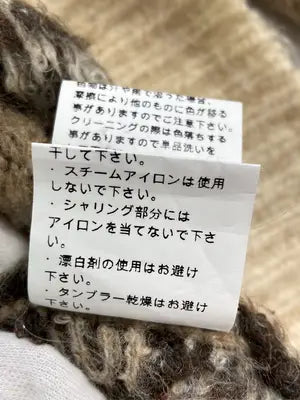 摩擦により他のものに色が移る
事がありますのでご注意下さい。
クリーニングの際は色落ちする
事がありますので単品洗いを
干して下さい。
・スチームアイロンは使用
しないで下さい。
・シャリング部分には
アイロンを当てないで下さ
い。
・漂白剤の使用はお避け
下さい。
・タンブラー乾燥はお避け
下さい。